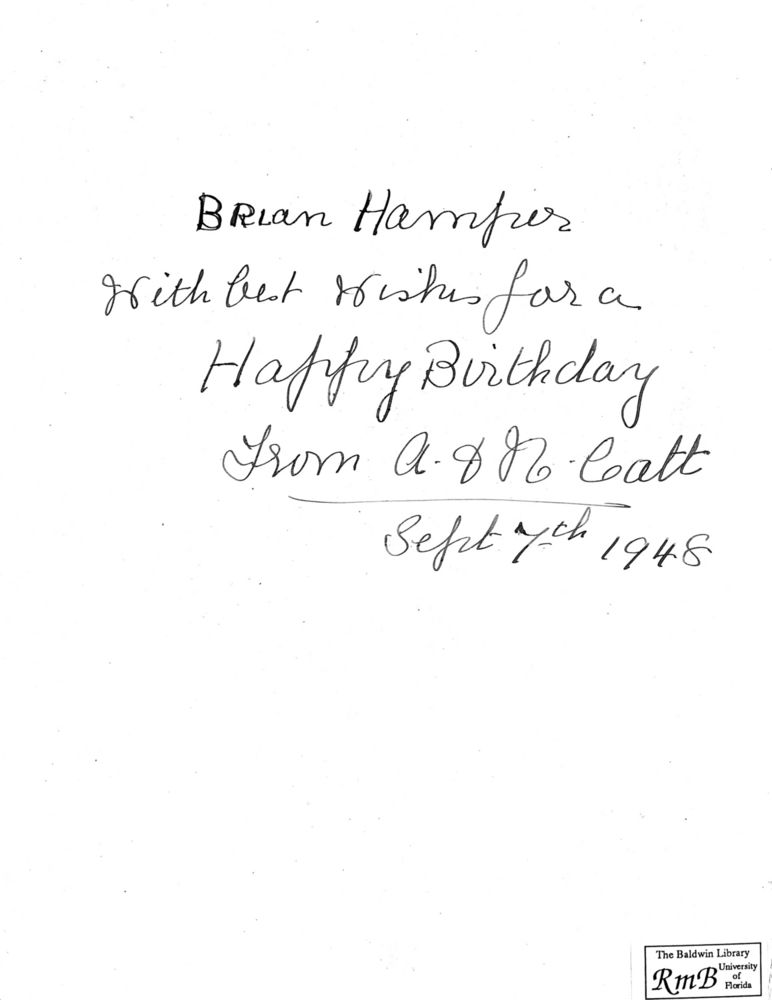 Brian Hamper
With best Wishes for a
Happy Birthday
From A. & N. Catt
Sept 7th 1948
The Baldwin Library
RmB University
of
Florida